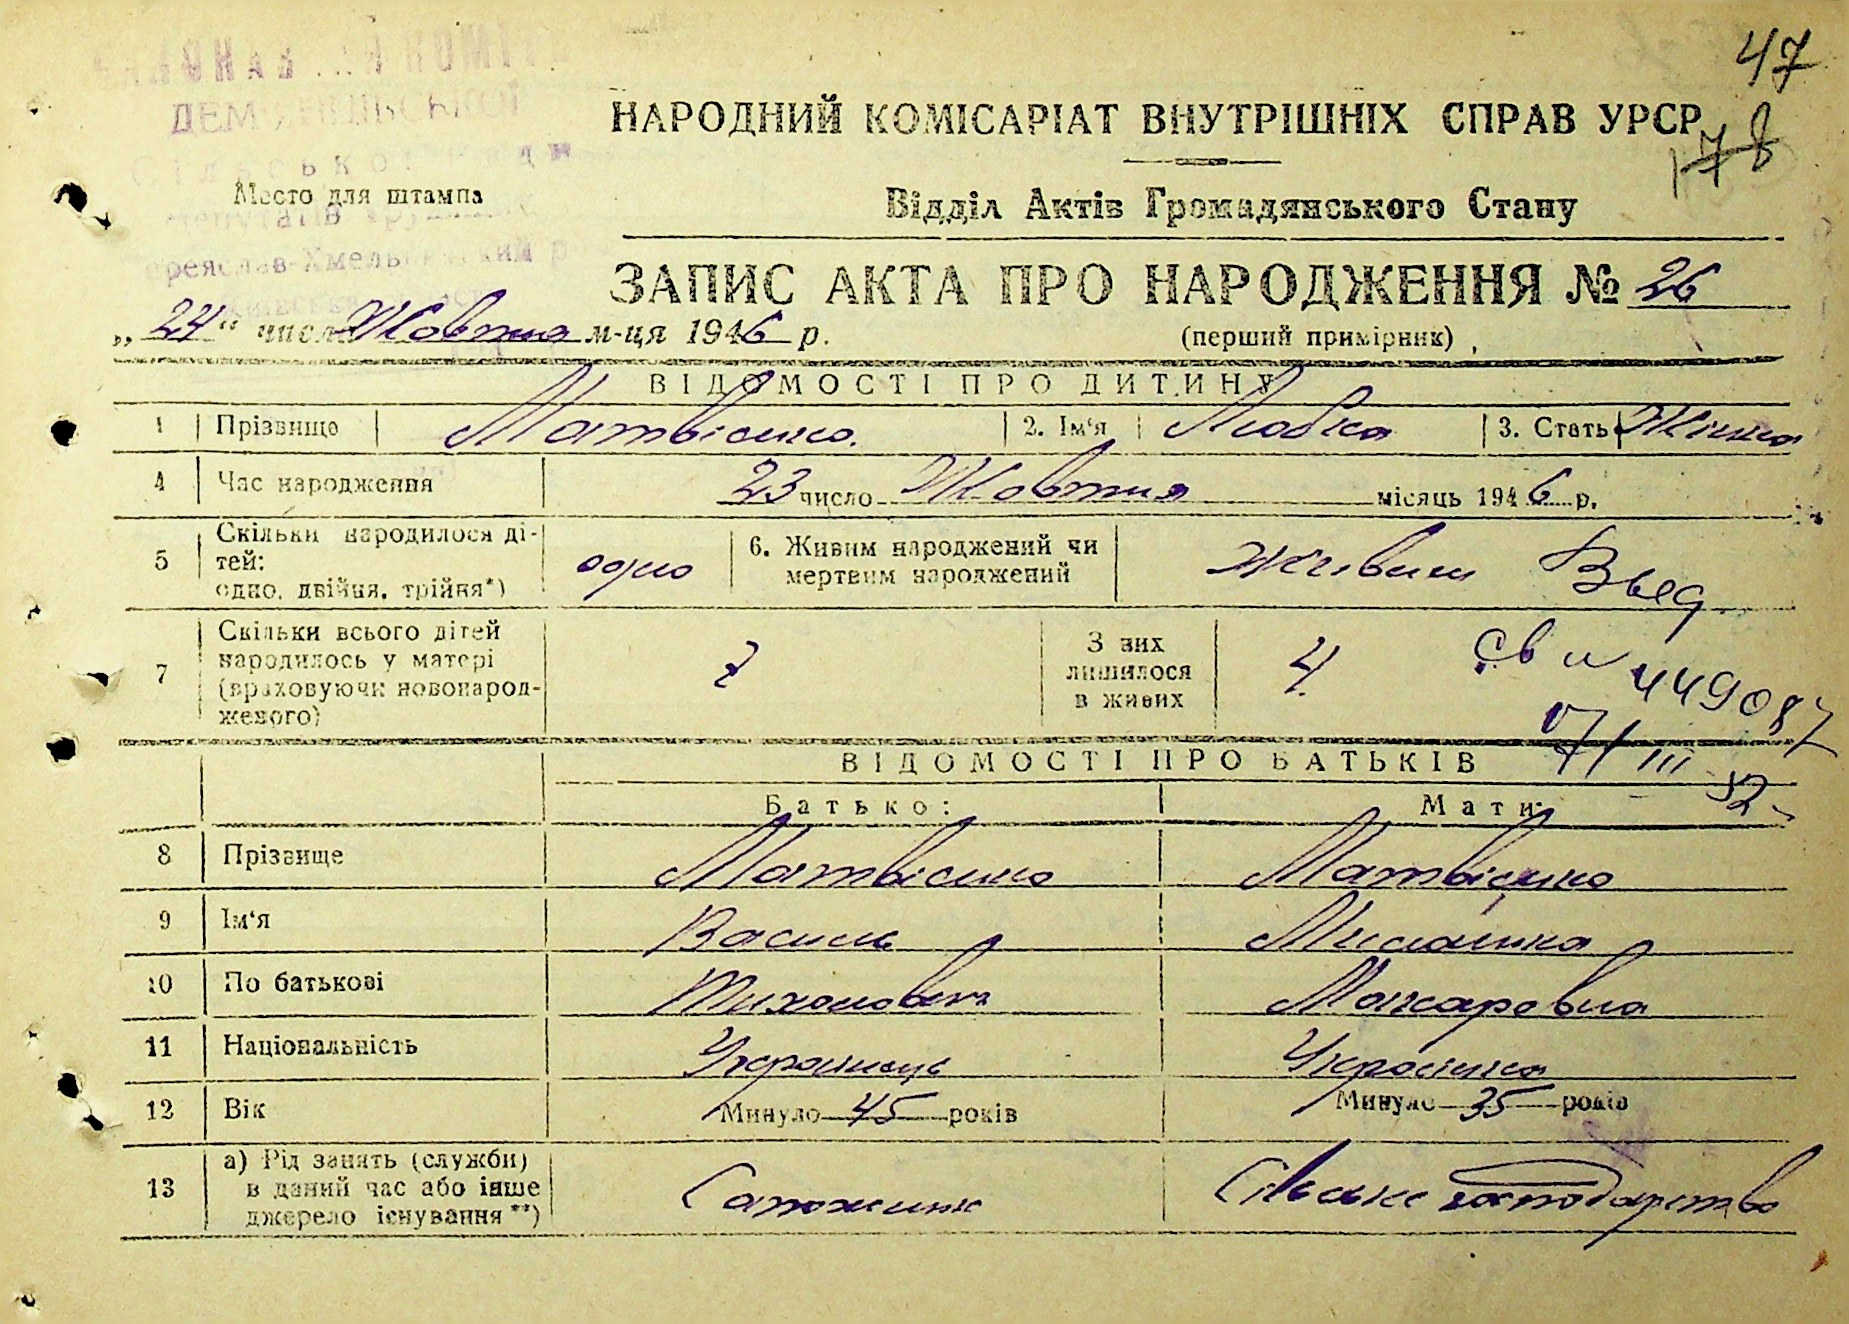 47
НАРОДНИЙ КОМІСАРІАТ ВНУТРІШНІХ СПРАВ УРСР
178
Место для штампа
Відділ Актів Громадянського Стану
ЗАПИС АКТА ПРО НАРОДЖЕННЯ № 26
„24“ числа Жовтня м-ця 1946 р.
(перший примірник)
ВІДОМОСТІ ПРО ДИТИНУ
1 Прізвище Матвієнко. 2. Ім'я Любка 3. Стать Жінка
4 Час народження 23 число Жовтня місяць 1946 р.
5 Скільки народилося ді-
тей:
одно, двійня, трійня*)
одно
6. Живим народжений чи
мертвим народжений
живим
7 Скільки всього дітей
народилось у матері
(враховуючи новонарод-
женого)
7
З них
лишилося
в живих
4
Св и 449087
17/III 52
ВІДОМОСТІ ПРО БАТЬКІВ
Батько: Мати:
8 Прізвище Матвієнко Матвієнко
9 Ім'я Василь
10 По батькові Тихонович Макаровна
11 Національність Українець Українка
12 Вік Минуло 45 років Минуло 35 років
13 а) Рід занять (служби)
в даний час або інше
джерело існування**)
Сапожник Сільське господарство